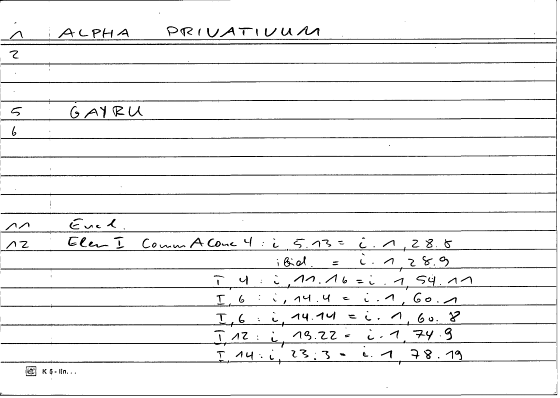 1 ALPHA PRIVATIVUM
2
5 GAYRU
6
11 Eucl.
12 Elem I Comm A Conc 4 : i, 5.13 = i. 1, 28.8
ibid. = i. 1, 28.9
I, 4 : i, 11.16 = i. 1, 54.11
I, 6 : i, 14.4 = i. 1, 60.1
I, 6 : i, 14.14 = i. 1, 60.8
I, 12 : i, 19.22 = i. 1, 74.9
I, 14 : i, 23.3 = i. 1, 78.19
K 5 - lin...